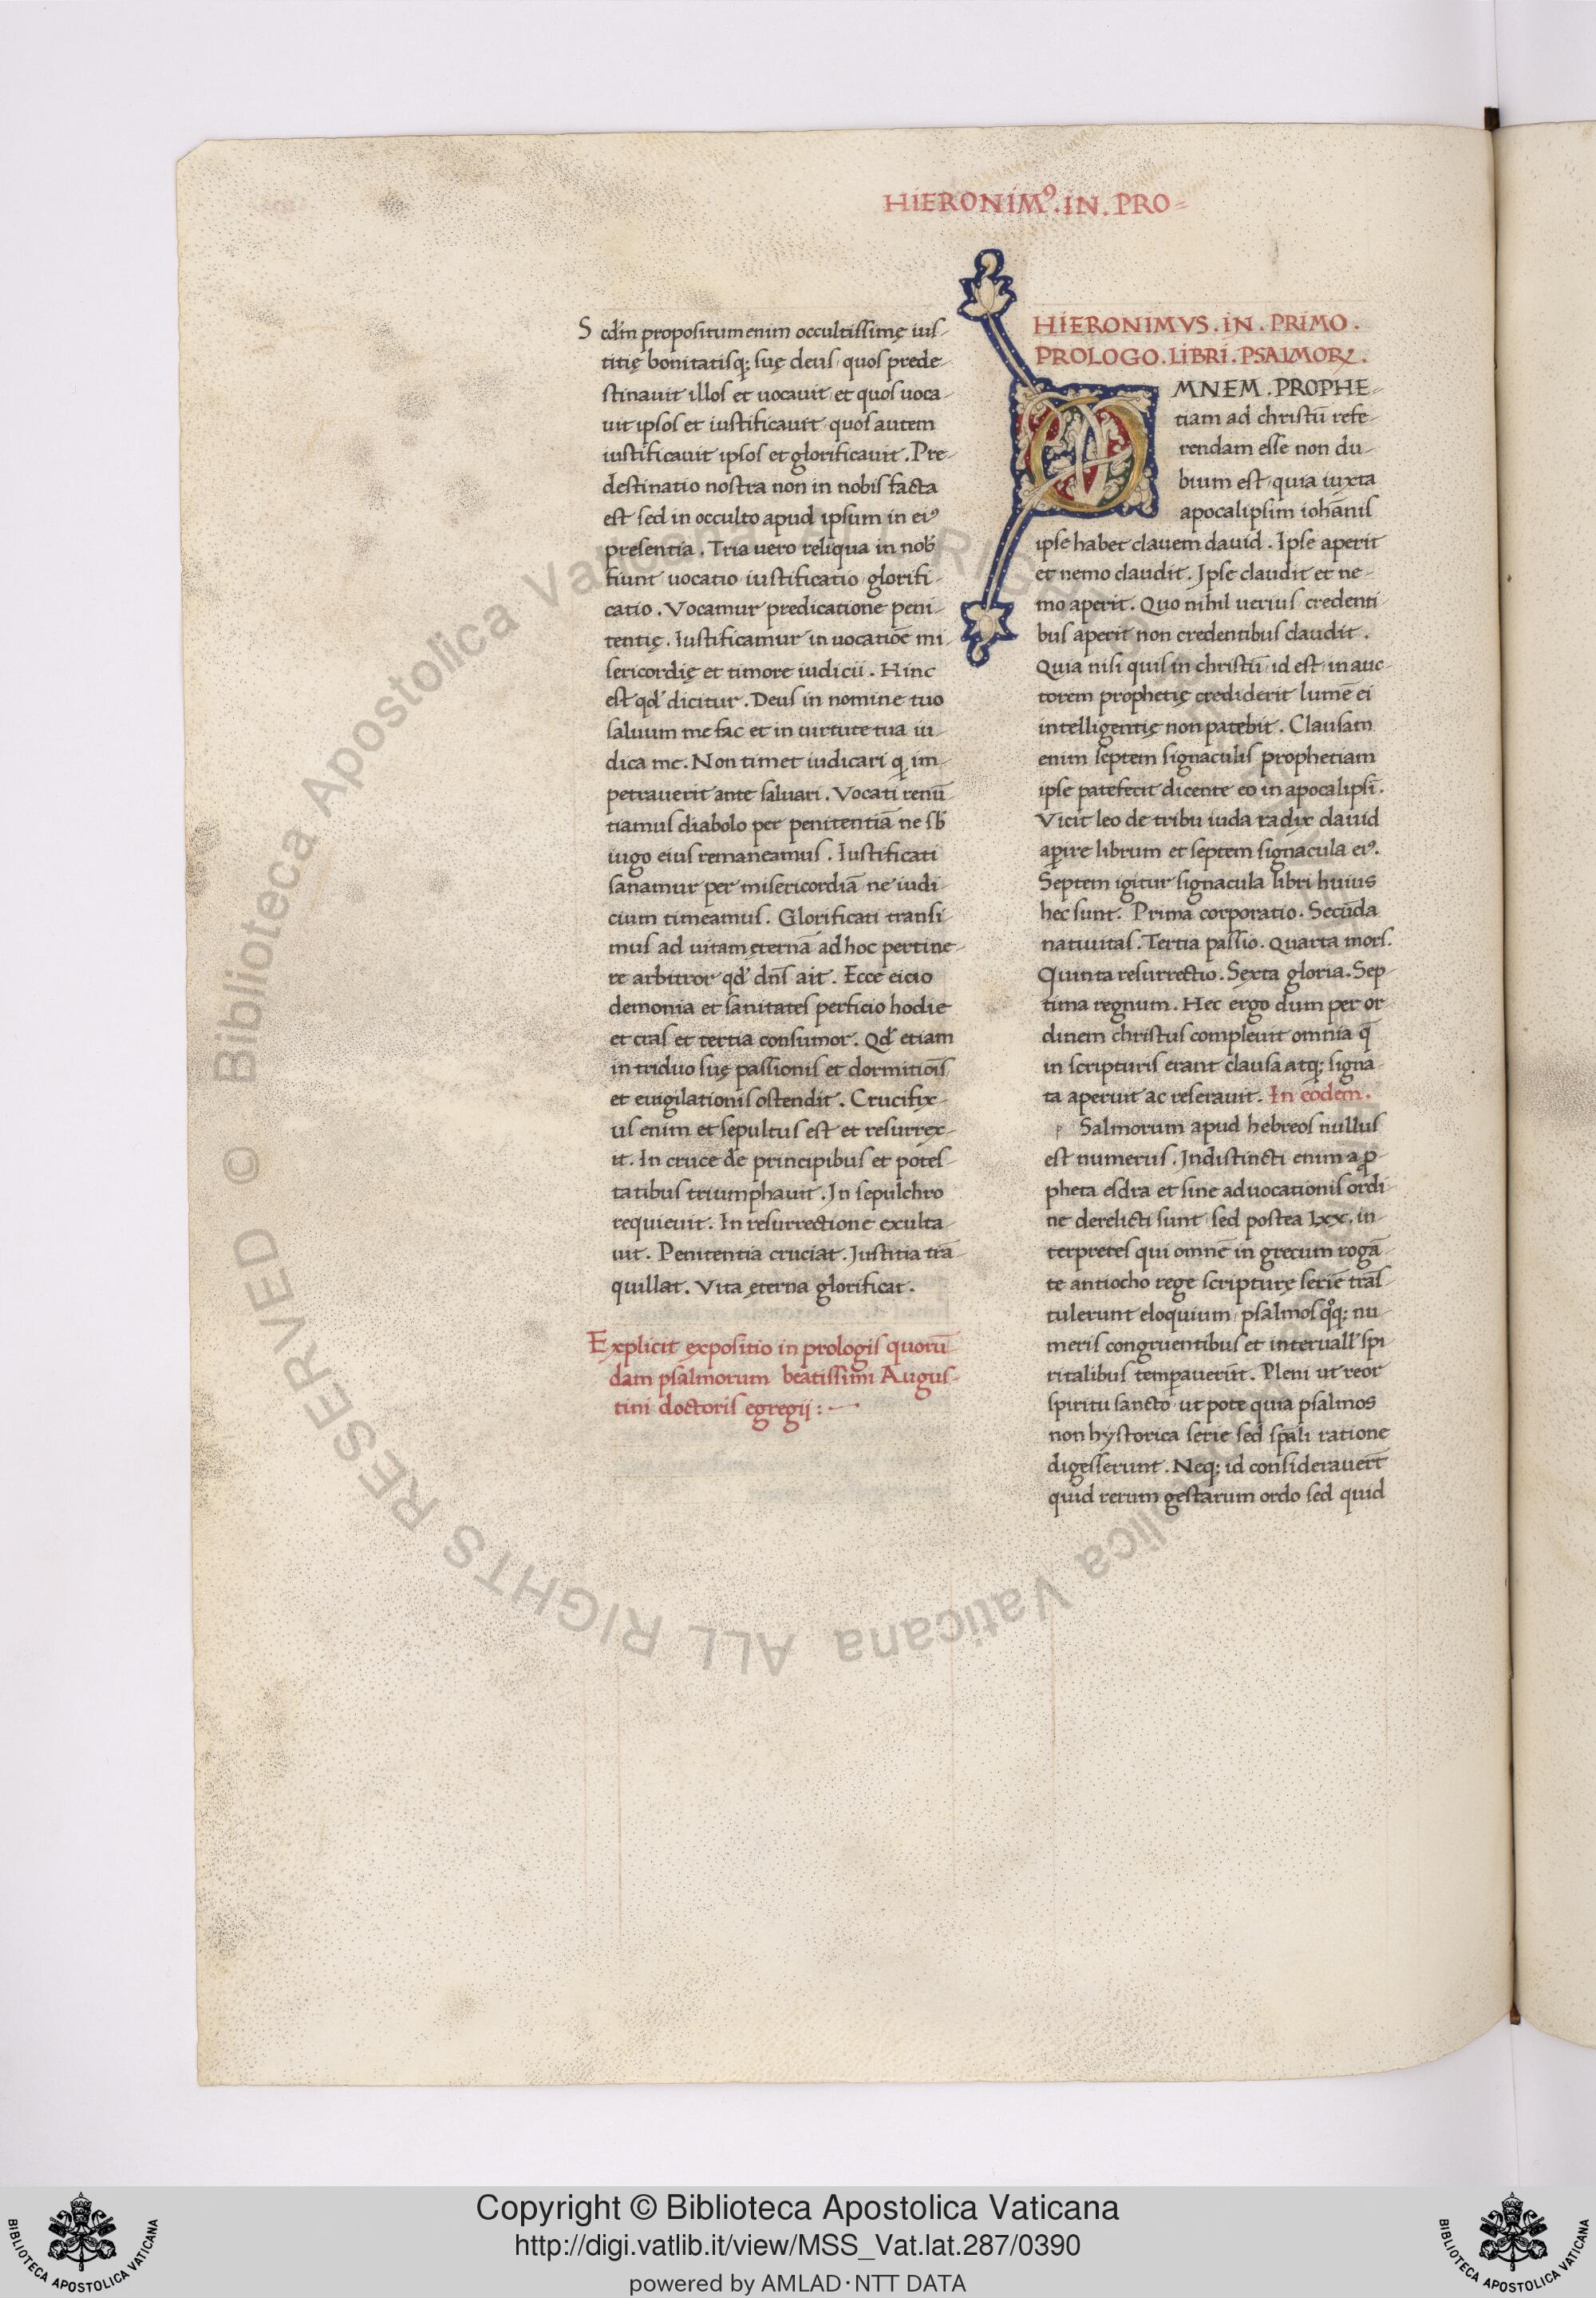 HIERONIMꝰ. IN. PRO=
S cdm̄ propositum enim occultissimę ius-
titię bonitatisq; suę deus quos prede-
stinauit illos et uocauit et quos uoca-
uit ipsos et iustificauit quos autem
iustificauit ipsos et glorificauit. Pre-
destinatio nostra non in nobis facta
est sed in occulto apud ipsum in eiꝰ
presentia. Tria uero reliqua in nob̄
fiunt uocatio iustificatio glorifi-
catio. Vocamur predicatione peni-
tentię. Iustificamur in uocatiōe mi-
sericordię et timore iudicii. Hinc
est qđ dicitur. Deus in nomine tuo
saluum me fac et in uirtute tua iu-
dica me. Non timet iudicari q im-
petrauerit ante saluari. Vocati renū-
tiamus diabolo per penitentiā ne sb̄
iugo eius remaneamus. Iustificati
sanamur per misericordiā ne iudi-
cium timeamus. Glorificati transi-
mus ad uitam ęternā ad hoc pertine-
re arbitror qđ dn̄s ait. Ecce eicio
demonia et sanitates perficio hodie
et cras et tertia consumor. Qđ etiam
in triduo suę passionis et dormitiōis
et euigilationis ostendit. Crucifix-
us enim et sepultus est et resurrex-
it. In cruce de principibus et potes-
tatibus triumphauit. In sepulchro
requieuit. In resurrectione exulta-
uit. Penitentia cruciat. Justitia trā-
quillat. Vita ęterna glorificat.
Explicit expositio in prologis quorū-
dam psalmorum beatissimi Augus-
tini doctoris egregij :-
HIERONIMVS. IN. PRIMO.
PROLOGO. LIBRI. PSALMORꝜ.
OMNEM. PROPHE-
tiam ad christū refe-
rendam esse non du-
bium est quia iuxta
apocalipsim iohānis
ipse habet clauem dauid. Ipse aperit
et nemo claudit. Ipse claudit et ne-
mo aperit. Quo nihil uerius credenti-
bus aperit non credentibus claudit.
Quia nisi quis in christū id est in auc-
torem prophetię crediderit lumē ei
intelligentię non patebit. Clausam
enim septem signaculis prophetiam
ipse patefecit dicente eo in apocalipsi.
Vicit leo de tribu iuda radix dauid
aꝑire librum et septem signacula eiꝰ.
Septem igitur signacula libri huius
hec sunt. Prima corporatio. Secūda
natiuitas. Tertia passio. Quarta mors.
Quinta resurrectio. Sexta gloria. Sep-
tima regnum. Hec ergo dum per or-
dinem christus compleuit omnia q̄
in scripturis erant clausa atq; signa-
ta aperuit ac reserauit. In eodem.
Psalmorum apud hebreos nullus
est numerus. Indistincti enim a ꝓ-
pheta esdra et sine aduocationis ordi-
ne derelicti sunt sed postea lxx. in-
terpretes qui omnē in grecum rogā-
te antiocho rege scripturę seriē trās-
tulerunt eloquium psalmos qͦq; nu-
meris congruentibus et interuall' spi-
ritalibus temperauerūt. Pleni ut reor
spiritu sancto ut pote quia psalmos
non hystorica serie sed sp̄ali ratione
digesserunt. Neq; id considerauerūt
quid rerum gestarum ordo sed quid
© Biblioteca Apostolica Vaticana ALL RIGHTS RESERVED
Copyright © Biblioteca Apostolica Vaticana
http://digi.vatlib.it/view/MSS_Vat.lat.287/0390
powered by AMLAD·NTT DATA
BIBLIOTECA APOSTOLICA VATICANA
BIBLIOTECA APOSTOLICA VATICANA